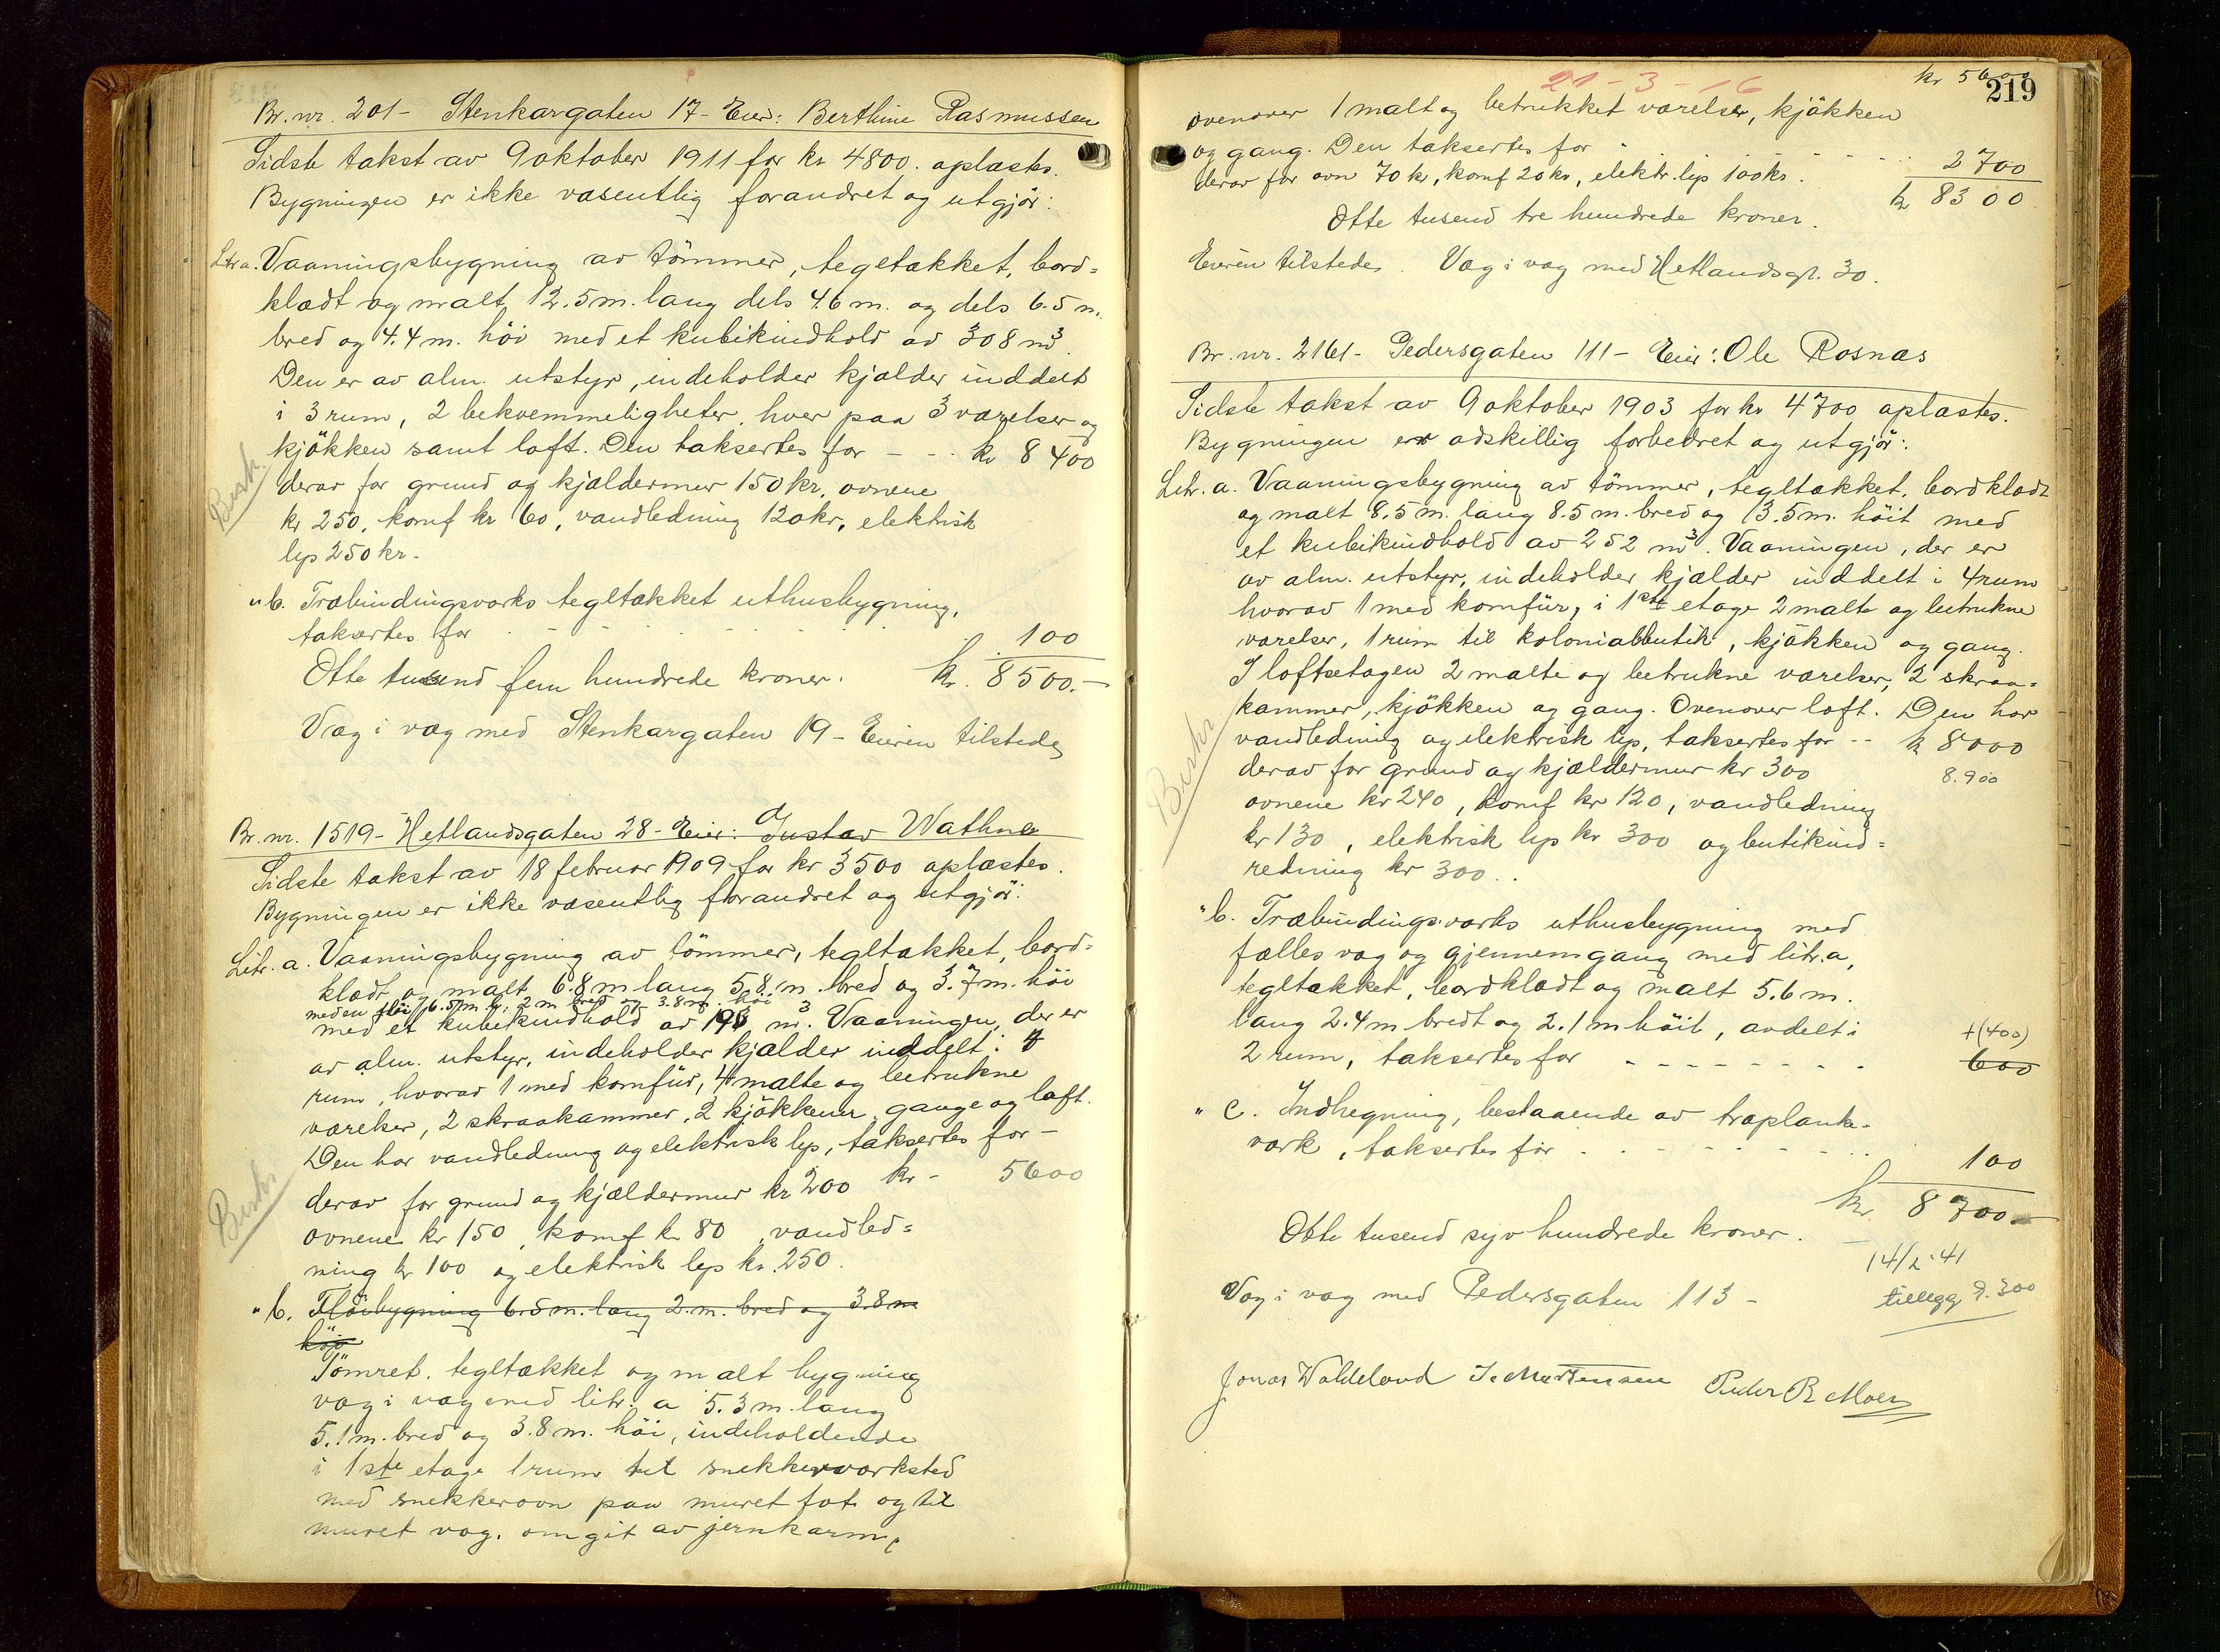 Br. nr. 201 - Stenkargaten 17 - Eier: Berthine Rasmussen
Sidste takst av 9 oktober 1911 for kr 4800. oplæstes.
Bygningen er ikke væsentlig forandret og utgjör:
Litr a. Vaaningsbygning av tömmer, tegltækket, bord=
klædt og malt, 12.5 m. lang dels 4.6 m. og dels 6.5 m.
bred og 4.4 m. höi med et kubikindhold av 308 m³.
Den er av alm. utstyr, indeholder kjælder inddelt
i 3 rum, 2 bekvemmeligheter hver paa 3 værelser og
kjökken samt loft. Den taksertes for - - - kr 8400
derav for grund og kjældermur 150 kr. ovnene
kr 250, komf kr 60, vandledning 120 kr, elektrisk
lys 250 kr.
Besk.
" b. Træbindingsværks tegltækket uthusbygning,
taksertes for . - - - - - - 100
Otte tusend fem hundrede kroner. kr. 8500.-
Væg i væg med Stenkargaten 19 - Eieren tilstede
Br. nr. 1519 - Hetlandsgaten 28 - Eier: Gustav Wathne
Sidste takst av 18 februar 1909 for kr 3500 oplæstes.
Bygningen er ikke væsentlig forandret og utgjör:
Litr. a. Vaaningsbygning av tömmer, tegltækket, bord=
klædt og malt 6.8 m lang 5.8 m bred og 3.7 m. höi
med en flöi 6.5 m lg. 2 m bred og 3.8 m. höi
med et kubikindhold av 198 m³. Vaaningen, der er
av alm. utstyr, indeholder kjælder inddelt i 4
rum, hvorav 1 med komfür, 4 malte og betrukne
værelser, 2 skraakammer, 2 kjökkener, gange og loft.
Den har vandledning og elektrisk lys, taksertes for -
kr - 5600
derav for grund og kjældermur kr 200
ovnene kr 150, komf kr 80, vandled=
ning kr 100 og elektrisk lys kr. 250.
Beskr
" b. Flöibygning 6.5 m. lang 2. m. bred og 3.8 m
höi
Tömret. tegltækket og malt bygning
væg i væg med litr. a 5.3 m. lang
5.1 m. bred og 3.8 m. höi, indeholdende
i 1ste etage 1 rum til snekkerværksted
med snekkerovn paa muret fot og til
muret væg, omgit av jernkarm,
21-3-16
kr 5600
219
ovenover 1 malt og betrukket værelser, kjökken
og gang. Den taksertes for - - - - - - 2700
derav for ovn 70 kr, komf 20 kr, elektr. lys 100 kr.
kr 8300
Otte tusend tre hundrede kroner.
Eieren tilstede. Væg i væg med Hetlandsgt. 30.
Br. nr. 2161 - Pedersgaten 111 - Eier: Ole Rosnæs
Sidste takst av 9 oktober 1903 for kr 4700 oplæstes.
Bygningen er adskillig forbedret og utgjör:
Litr. a. Vaaningsbygning av tömmer, tegltækket, bordklædt
og malt 8.5 m. lang 8.5 m. bred og 3.5 m. höit med
et kubikindhold av 252 m³. Vaaningen, der er
av alm. utstyr, indeholder kjælder inddelt i 4 rum
hvorav 1 med komfür, i 1ste etage 2 malte og betrukne
værelser, 1 rum til kolonialbutik, kjökken og gang.
I loftsetagen 2 malte og betrukne værelser, 2 skraa=
kammer, kjökken og gang. Ovenover loft. Den har
vandledning og elektrisk lys, taksertes for -- kr 8000
8.900
derav for grund og kjældermur kr 300
ovnene kr 240, komf kr 120, vandledning
kr 130, elektrisk lys kr 300 og butikind=
redning kr 300.
Beskr
" b. Træbindingsværks uthusbygning med
fælles væg og gjennemgang med litr. a,
tegltækket, bordklædt og malt 5.6 m.
lang 2.4 m bredt og 2.1 m höit, avdelt i
+(400)
2 rum, taksertes for - - - - - - - - 600
" c. Indhegning, bestaaende av træplanke=
værk, taksertes for - - - - - - - 100
kr. 8700.-
Otte tusend syv hundrede kroner.
14/2-41
tillegg 300
Væg i væg med Pedersgaten 113 -
Jonas Waldeland I. Mortensen Peder R Moen